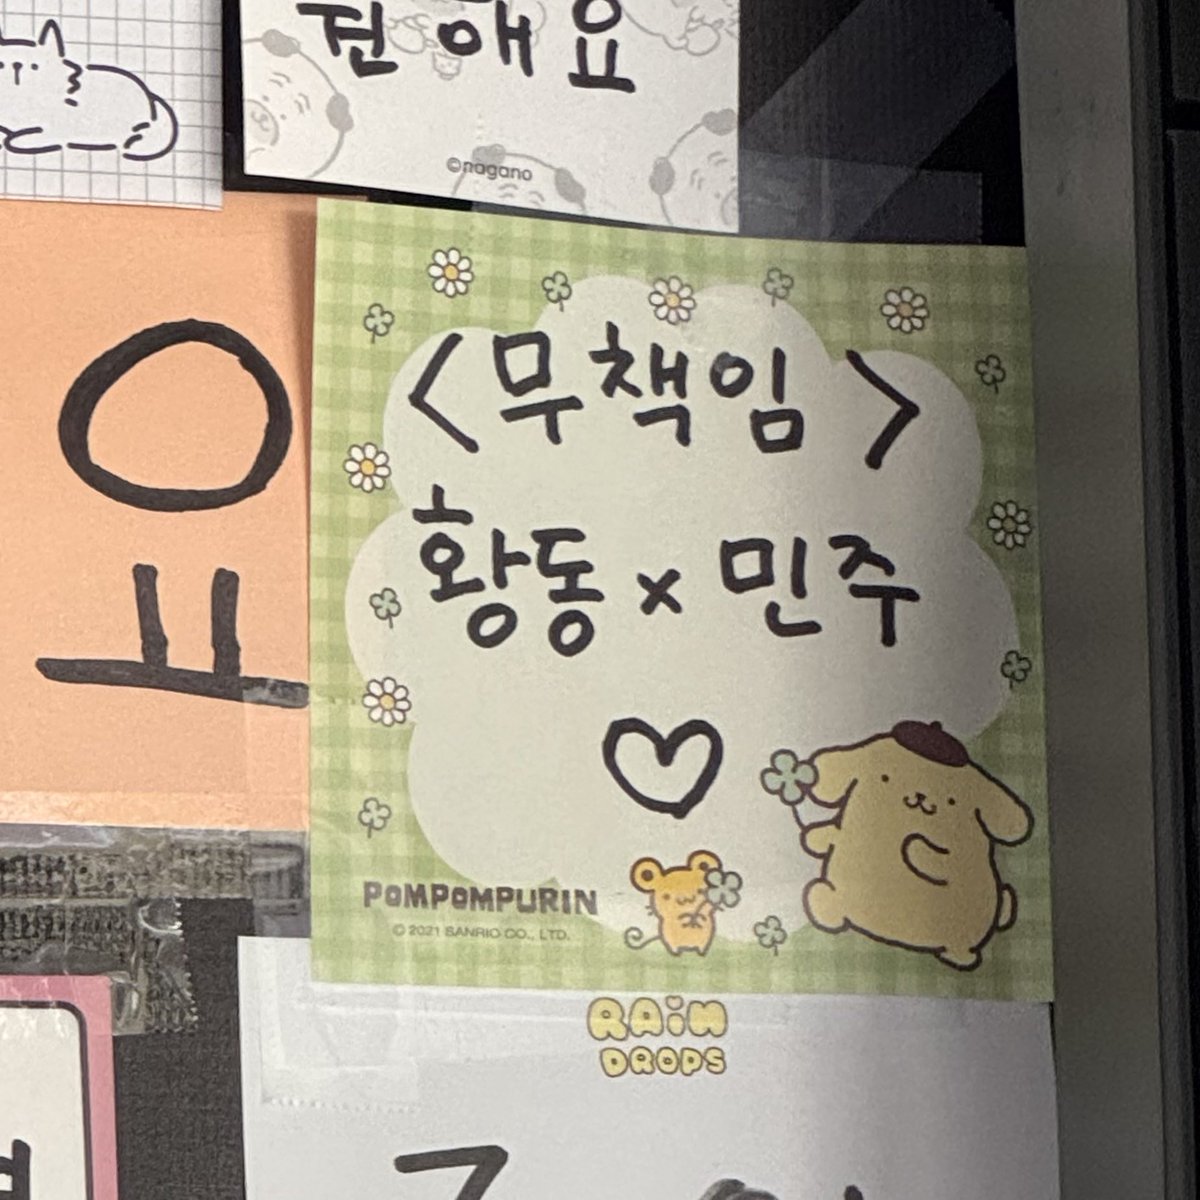 권애요
©nagano
요
<무책임>
황동 x 민주
POMPOMPURIN
© 2021 SANRIO CO., LTD.
RAiN
DROPS